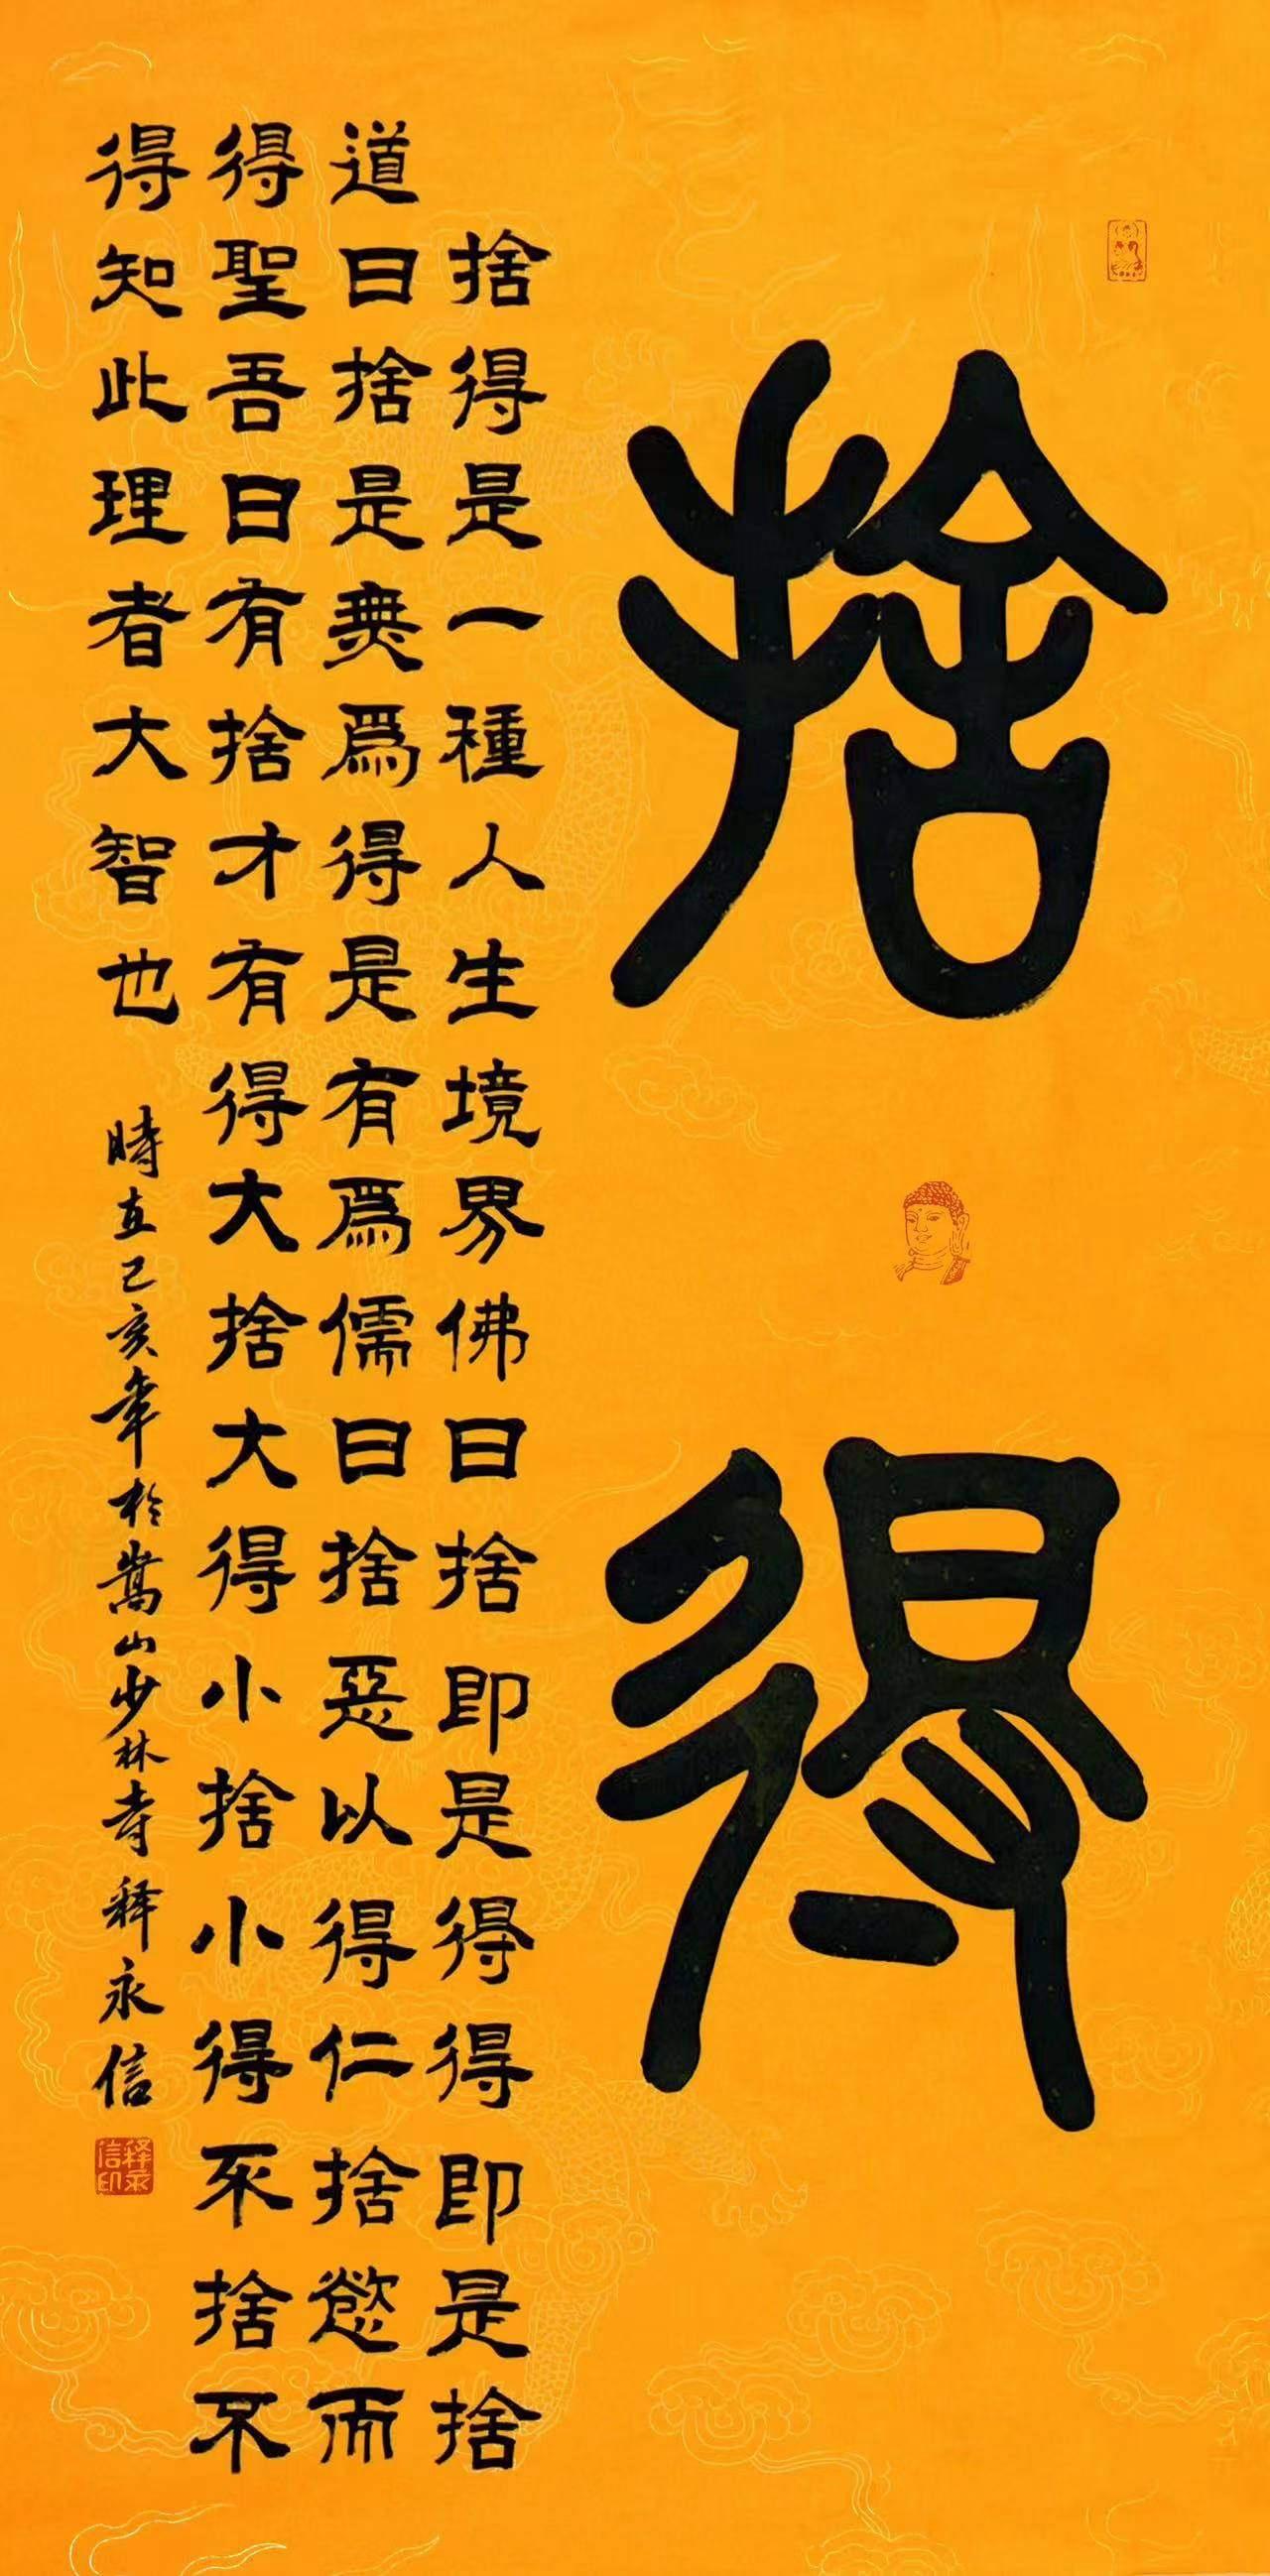 捨得
捨得是一種人生境界佛曰捨即是得得即是捨
道曰捨是無為得是有為儒曰捨惡以得仁捨慾而
得聖吾曰有捨才有得大捨大得小捨小得不捨不
得知此理者大智也
時在己亥年於嵩山少林寺釋永信
释永信印